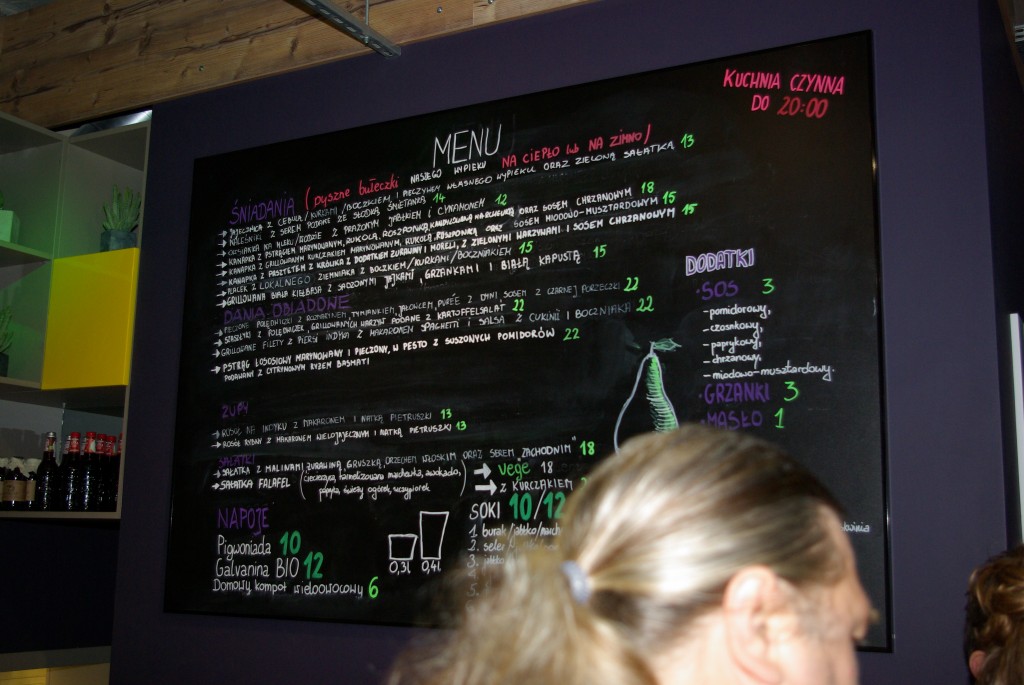 KUCHNIA CZYNNA
DO 20:00
MENU
ŚNIADANIA (pyszne bułeczki NASZEGO WYPIEKU NA CIEPŁO lub NA ZIMNO)
→ JAJECZNICA Z CEBULĄ/KURKAMI/BOCZKIEM, I PIECZYWEM WŁASNEGO WYPIEKU ORAZ ZIELONĄ SAŁATKĄ 13
→ NALEŚNIKI Z SEREM PODANE ZE SŁODKĄ ŚMIETANKĄ 14
→ OWSIANKA NA MLEKU/WODZIE Z PRAŻONYM JABŁKIEM I CYNAMONEM 12
→ KANAPKA Z PSTRĄGIEM MARYNOWANYM, RUKOLĄ, ROSZPONKĄ, KANDYZOWANĄ MARCHEWKĄ ORAZ SOSEM CHRZANOWYM 18
→ KANAPKA Z GRILLOWANYM KURCZAKIEM MARYNOWANYM, RUKOLĄ, ROSZPONKĄ ORAZ SOSEM MIODOWO-MUSZTARDOWYM 15
→ KANAPKA Z PASZTETEM Z KRÓLIKA Z DODATKIEM ŻURAWINY I MORELI, Z ZIELONYMI WARZYWAMI I SOSEM CHRZANOWYM 15
→ PLACEK Z LOKALNEGO ZIEMNIAKA Z BOCZKIEM/KURKAMI/BOCZNIAKIEM 15
→ GRILLOWANA BIAŁA KIEŁBASA Z SADZONYMI JAJKAMI, GRZANKAMI I BIAŁĄ KAPUSTĄ 15
DANIA OBIADOWE
→ PIECZONE POLĘDWICZKI Z ROZMARYNEM, TYMIANKIEM, JAŁOWCEM, PURÉE Z DYNI, SOSEM Z CZARNEJ PORZECZKI 22
→ SZASZŁYKI Z POLĘDWICZEK, GRILLOWANYCH WARZYW PODANE Z KARTOFFELSALAT 22
→ GRILLOWANE FILETY Z PIERSI INDYKA Z MAKARONEM SPAGHETTI I SALSĄ Z CUKINII I BOCZNIAKA 22
→ PSTRĄG ŁOSOSIOWY MARYNOWANY I PIECZONY, W PESTO Z SUSZONYCH POMIDORÓW 22
PODAWANY Z CYTRYNOWYM RYŻEM BASMATI
ZUPY
→ ROSÓŁ NA INDYKU Z MAKARONEM I NATKĄ PIETRUSZKI 13
→ ROSÓŁ RYBNY Z MAKARONEM WIELOJAJECZNYM I NATKĄ PIETRUSZKI 13
SAŁATKI
→ SAŁATKA Z MALINAMI, ŻURAWINĄ, GRUSZKĄ, ORZECHEM WŁOSKIM ORAZ SEREM "ZACHODNIM" 18
→ SAŁATKA FALAFEL (ciecierzyca, karmelizowana marchewka, awokado, papryka, świeży ogórek, szczypiorek)
→ vege 18
→ Z KURCZAKIEM
NAPOJE
Pigwoniada 10
Galvanina BIO 12
Domowy kompot wieloowocowy 6
0,3l 0,4l
SOKI 10/12
1. burak/jabłko/
2. seler
3. jabłko
DODATKI
• SOS 3
– pomidorowy,
– czosnkowy,
– paprykowy,
– chrzanowy,
– miodowo-musztardowy.
• GRZANKI 3
• MASŁO 1